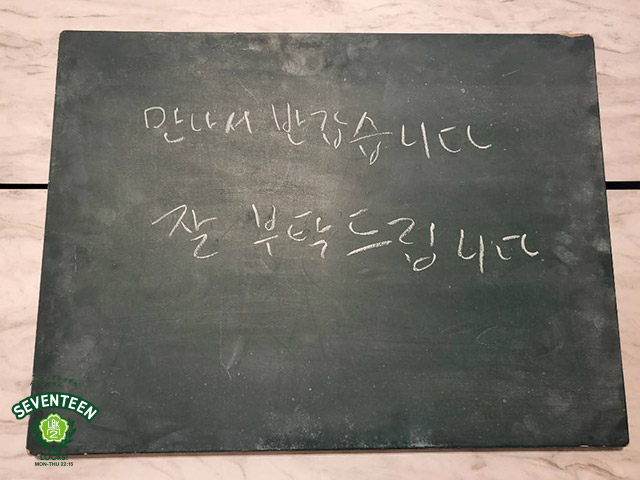 만나서 반갑습니다
잘 부탁드립니다
SEVENTEEN
MON-THU 22:15